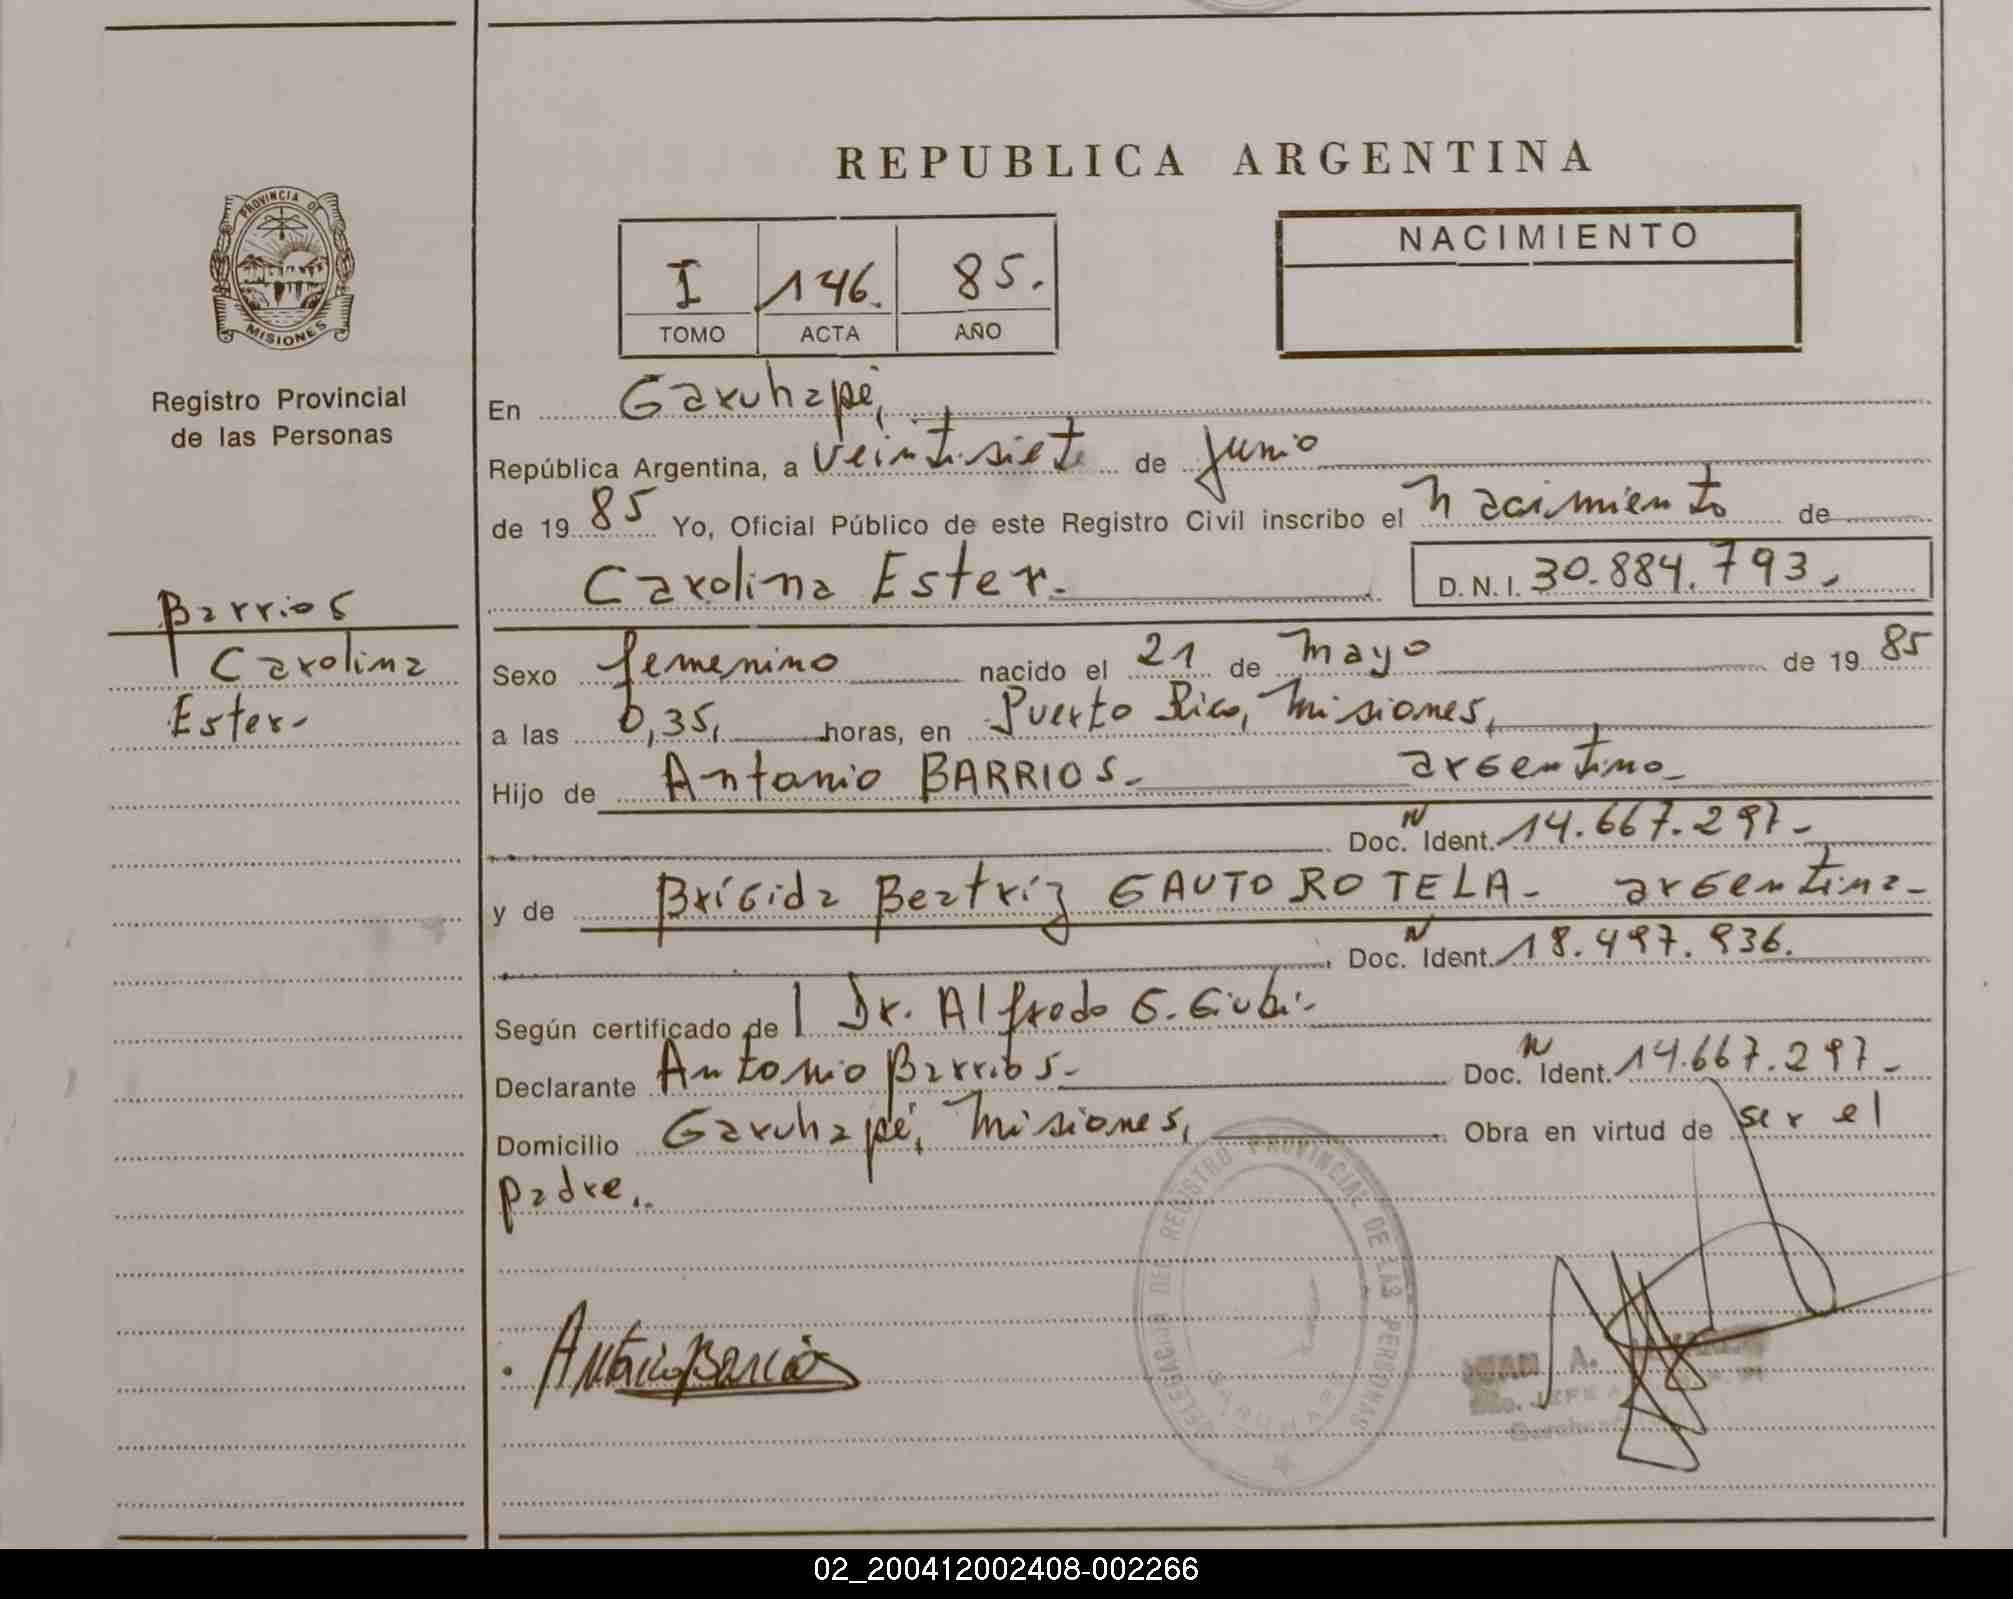 PROVINCIA DE
MISIONES
Registro Provincial
de las Personas
Barrios
Carolina
Ester-
REPUBLICA ARGENTINA
I 146. 85.
TOMO ACTA AÑO
NACIMIENTO
En Garuhapé,
República Argentina, a veintisiete de Junio
de 19 85 Yo, Oficial Público de este Registro Civil inscribo el nacimiento de
Carolina Ester.- D.N.I. 30.884.793.
Sexo femenino nacido el 21 de mayo de 19 85
a las 0,35, horas, en Puerto Rico, Misiones,
Hijo de Antonio BARRIOS- argentino-
Doc. N Ident. 14.667.297-
y de Brígida Beatríz GAUTO ROTELA- argentina-
Doc. N Ident. 18.497.936.
Según certificado de Dr. Alfredo G.
Declarante Antonio Barrios- Doc. N Ident. 14.667.297-
Domicilio Garuhapé, Misiones, Obra en virtud de ser el
padre.
DELEGACION DEL REGISTRO PROVINCIAL DE LAS PERSONAS
GARUHAPE
Antonio Barrios
JUAN A.
JEFE
02_200412002408-002266